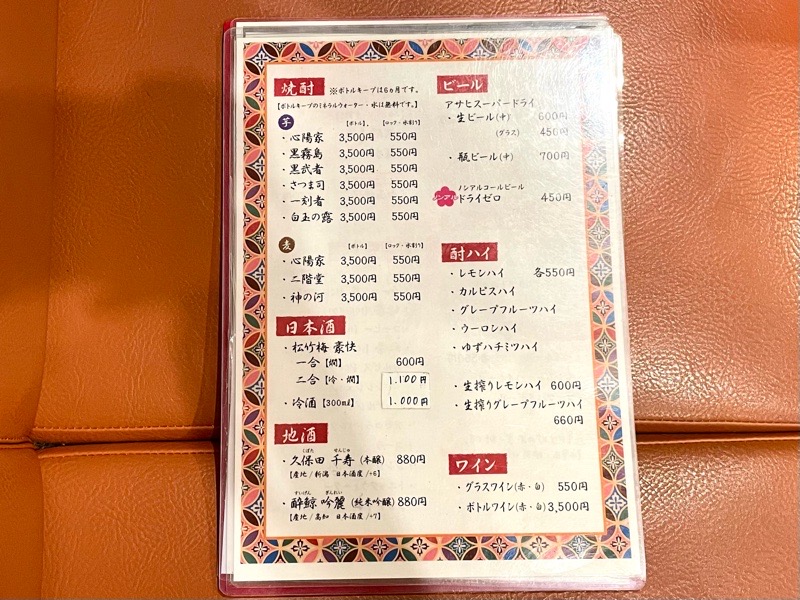 焼酎 ※ボトルキープは6ヵ月です。
【ボトルキープのミネラルウォーター・氷は無料です。】
芋 【ボトル】、 【ロック・水割り】
・心陽家 3,500円 550円
・黒霧島 3,500円 550円
・黒武者 3,500円 550円
・さつま司 3,500円 550円
・一刻者 3,500円 550円
・白玉の露 3,500円 550円
麦 【ボトル】 【ロック・水割り】
・心陽家 3,500円 550円
・二階堂 3,500円 550円
・神の河 3,500円 550円
日本酒
・松竹梅 豪快
一合【燗】 600円
二合【冷・燗】 1.100円
・冷酒【300ml】 1.000円
地酒
くぼた せんじゅ
・久保田 千寿(本醸) 880円
【産地/新潟 日本酒度/+6】
すいげい ぎんれい
・酔鯨 吟麗(純米吟醸)880円
【産地/高知 日本酒度/+7】
ビール
アサヒスーパードライ
・生ビール(中) 600円
(グラス) 450円
・瓶ビール(中) 700円
ノンアルコールビール
ノンアル ドライゼロ 450円
酎ハイ
・レモンハイ 各550円
・カルピスハイ
・グレープフルーツハイ
・ウーロンハイ
・ゆずハチミツハイ
・生搾りレモンハイ 600円
・生搾りグレープフルーツハイ
660円
ワイン
・グラスワイン(赤・白) 550円
・ボトルワイン(赤・白)3,500円